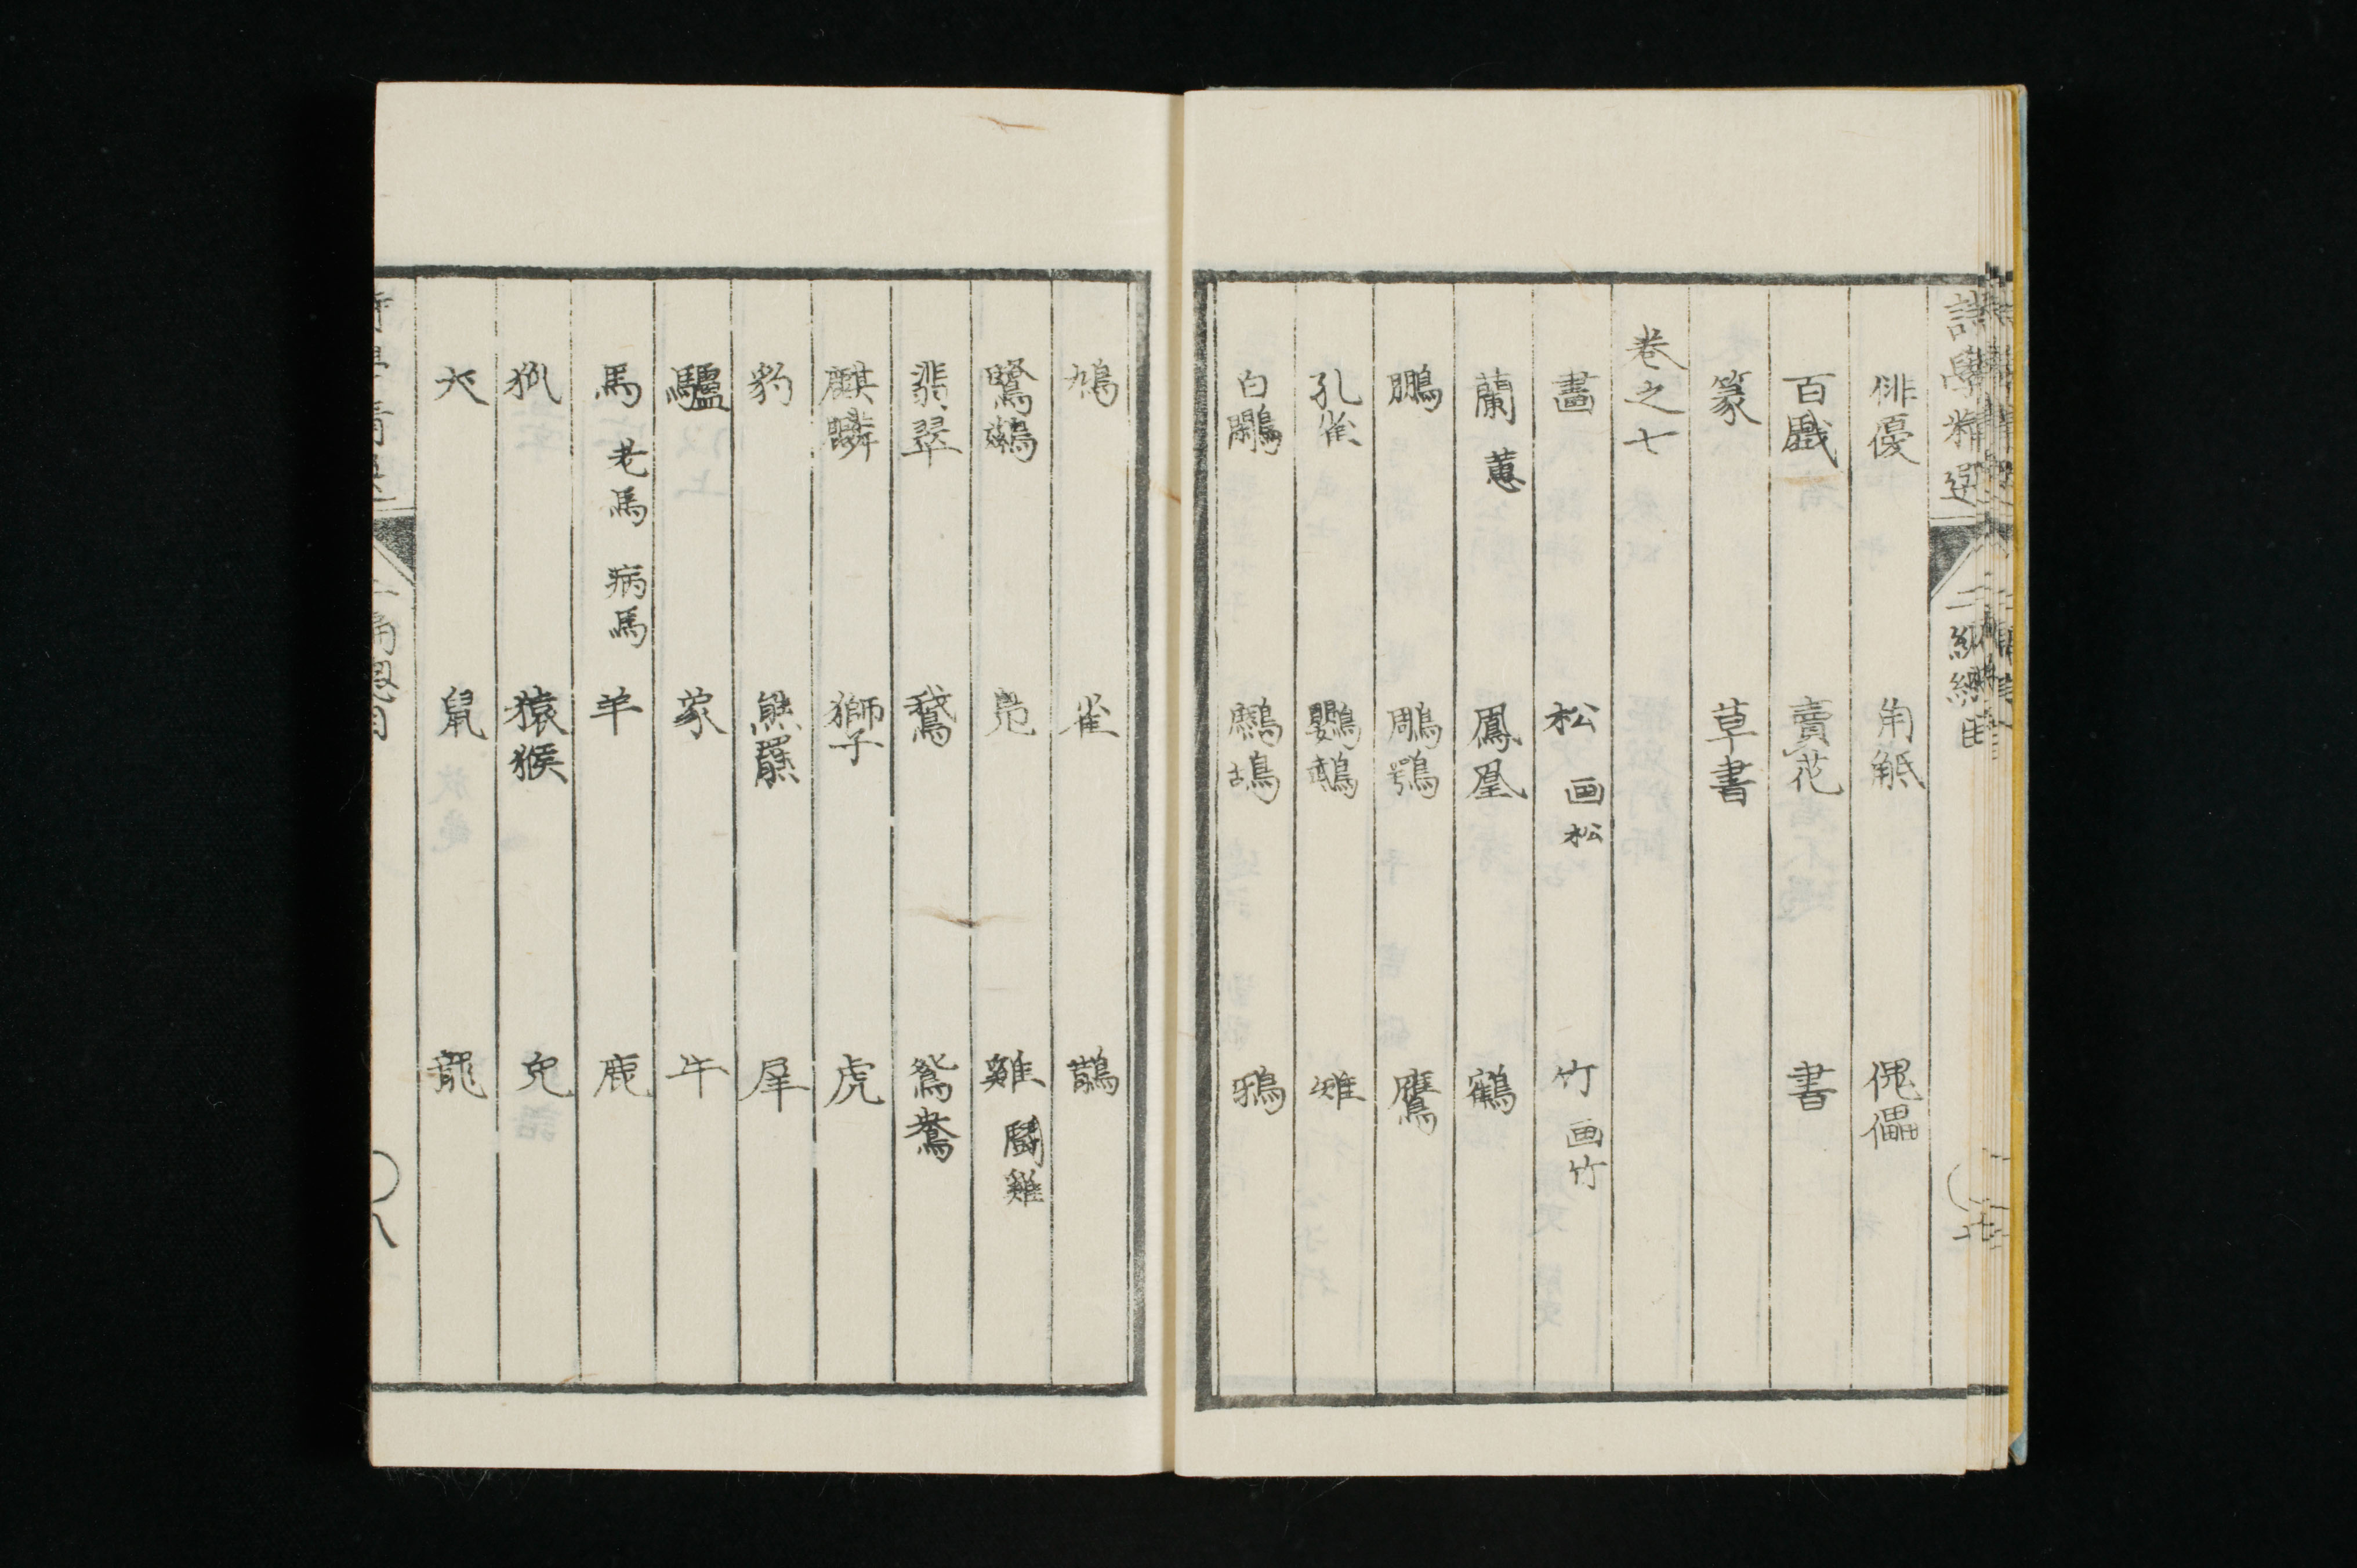 詩學精選
二編總目
七
俳優 角觝 傀儡
百戲 賣花 書
篆 草書
卷之七
畫 松 画松 竹 画竹
蘭 蕙 鳳凰 鶴
鵬 鵰鶚 鷹
孔雀 鸚鵡 雉
白鷴 鷓鴣 鴉
鳩 雀 鵲
鷺鷀 梟 雞 鬪雞
翡翠 鵞 鴛鴦
麒麟 獅子 虎
豹 熊羆 犀
驢 象 牛
馬 老馬 病馬 羊 鹿
狐 猿猴 兔
犬 鼠 龍
八